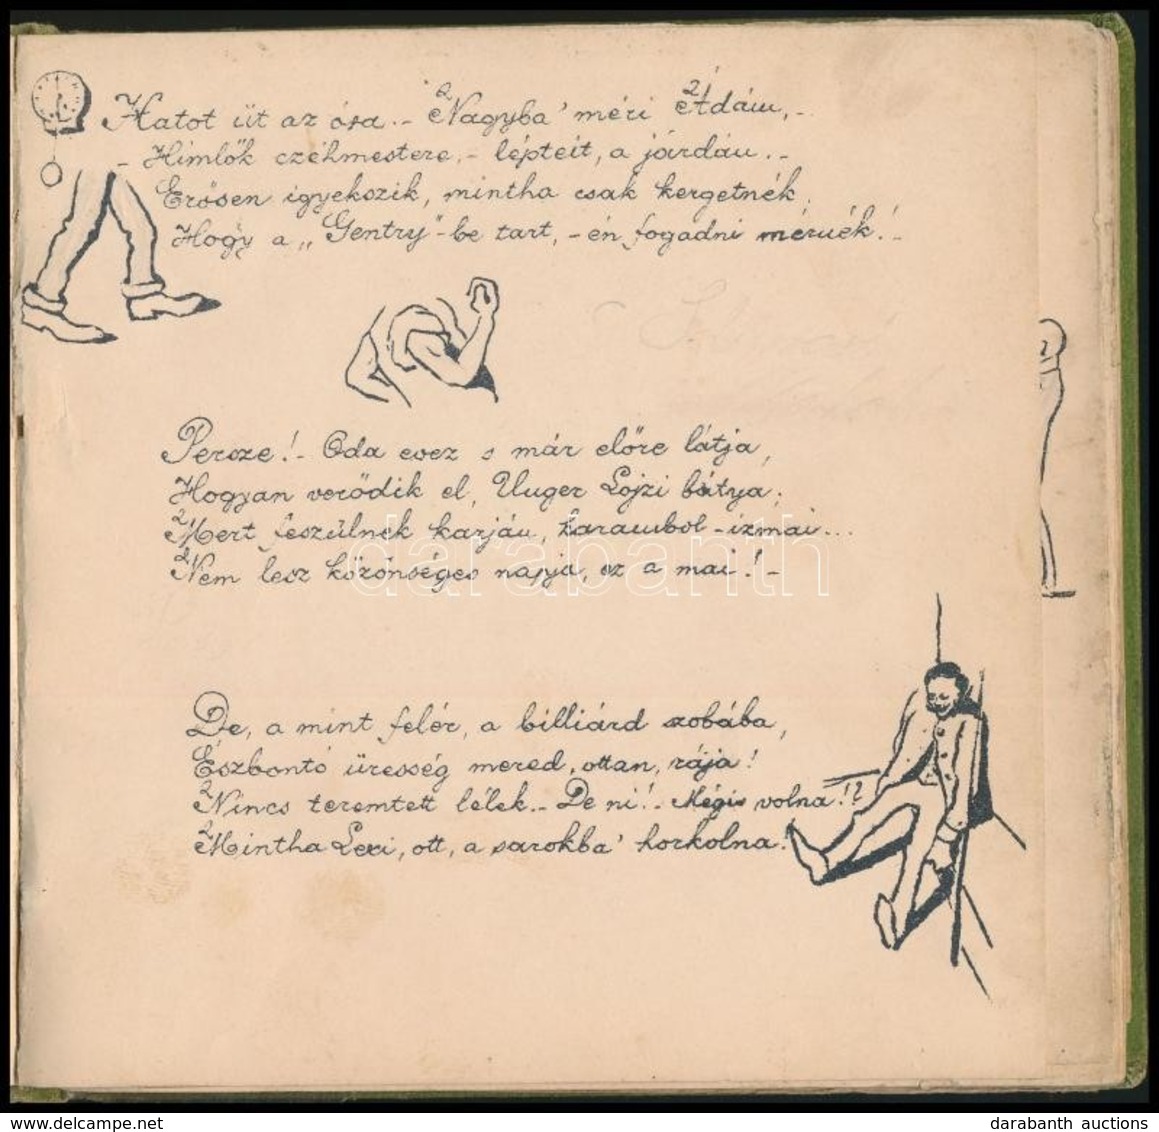 Hatot üt az óra.- Nagyba' méri Ádám,-
- Himlők czéhmestere,- lépteit, a járdán.-
Erősen igyekszik, mintha csak kergetnék,
Hogy a „Gentry"-be tart,- én fogadni mernék!-
Persze!- Oda evez s már előre látja,
Hogyan verődik el, Unger Lojzi bátya;
Mert feszülnek karján, karambol-izmai...
Nem lesz közönséges napja, ez a mai!-
De, a mint felér, a billiárd szobába,
Észbontó üresség mered, ottan, rája!
Nincs teremtett lélek.- De ni!- Mégis volna!?
Mintha Lexi, ott, a sarokba' horkolna!
darabanth
darabanth auctions
www.delcampe.net